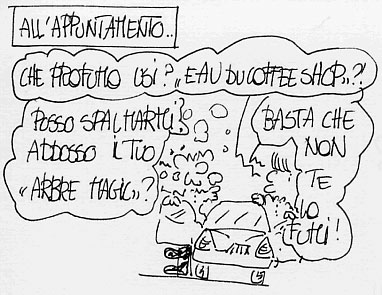 ALL'APPUNTAMENTO..
CHE PROFUMO USI? "EAU DU COFFEE SHOP"?!
POSSO SPALMARTI
ADDOSSO IL TUO
"ARBRE MAGIC"?
BASTA CHE
NON
TE
LO
FUMI!